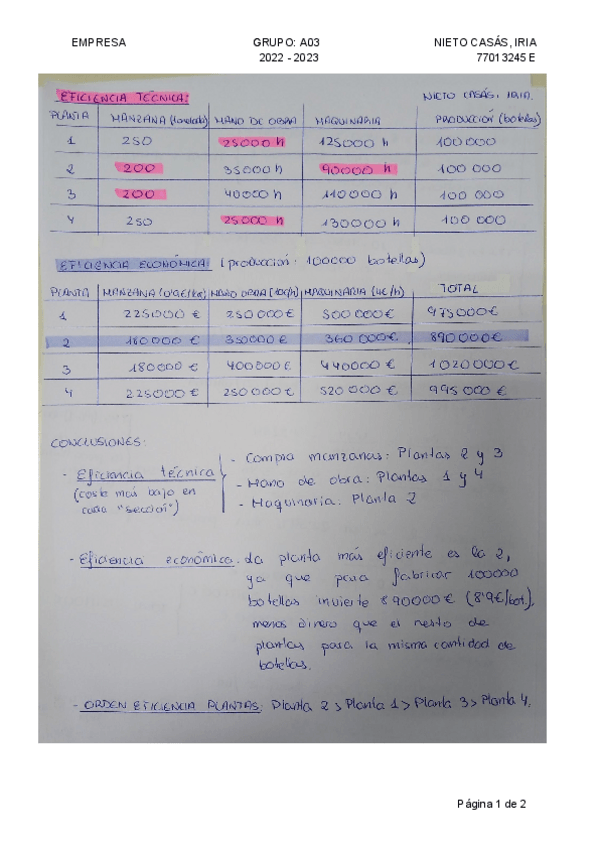 EMPRESA GRUPO: A03 NIETO CASÁS, IRIA
2022 - 2023 77013245 E
EFICIENCIA TÉCNICA: NIETO CASÁS, IRIA.
PLANTA MANZANA (toneladas) MANO DE OBRA MAQUINARIA PRODUCCIÓN (botellas)
1 250 25000 h 125000 h 100 000
2 200 35000 h 90000 h 100 000
3 200 40000 h 110000 h 100 000
4 250 25000 h 130000 h 100 000
EFICIENCIA ECONÓMICA: (producción: 100000 botellas)
PLANTA MANZANA (0'9€/kg) MANO OBRA (10€/h) MAQUINARIA (4€/h) TOTAL
1 225000 € 250000€ 500 000€ 975000€
2 180000 € 350000€ 360 000€ 890000€
3 180000€ 400000€ 440000€ 1020000€
4 225000€ 250000€ 520000€ 995000€
CONCLUSIONES:
- Eficiencia técnica - Compra manzanas: Plantas 2 y 3
(coste más bajo en - Mano de obra: Plantas 1 y 4
cada "sección") - Maquinaria: Planta 2
- Eficiencia económica. La planta más eficiente es la 2,
ya que para fabricar 100000
botellas invierte 890000€ (8'9€/bot),
menos dinero que el resto de
plantas para la misma cantidad de
botellas.
- ORDEN EFICIENCIA PLANTAS: Planta 2 > Planta 1 > Planta 3 > Planta 4.
Página 1 de 2